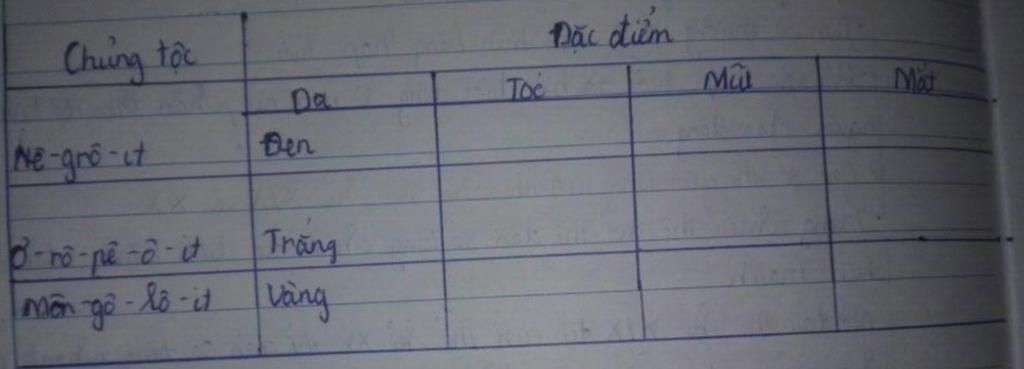 Chủng tộc Đặc điểm
Da Tóc Mũi Mắt
Nê-grô-it Đen
Ơ-rô-pê-ô-it Trắng
Môn-gô-lô-it Vàng